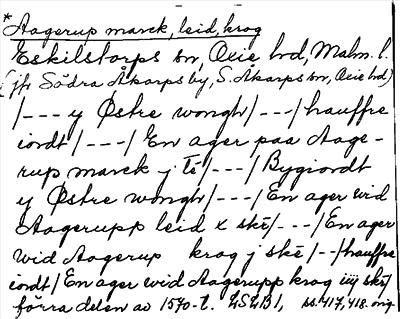 * Aagerup marck, leid, krog
Eskilstorps sn, Oxie hd, Malm. l.
(jfr Södra Åkarps by, S. Åkarps sn, Oxie hd)
/--- y Østre wongh/---/hauffre
iordt/---/En ager paa Aage-
rup marck j té/---/Bygiordt
y Østre wongh/---/En ager wid
Aagerupp leid x ské/---/En ager
wid Aagerup krog j ské/--/hauffre
iordt/En ager wid Aagerupp krog iiij ské/
förra delen av 1570-t. LSLB1, ss. 417, 418. orig